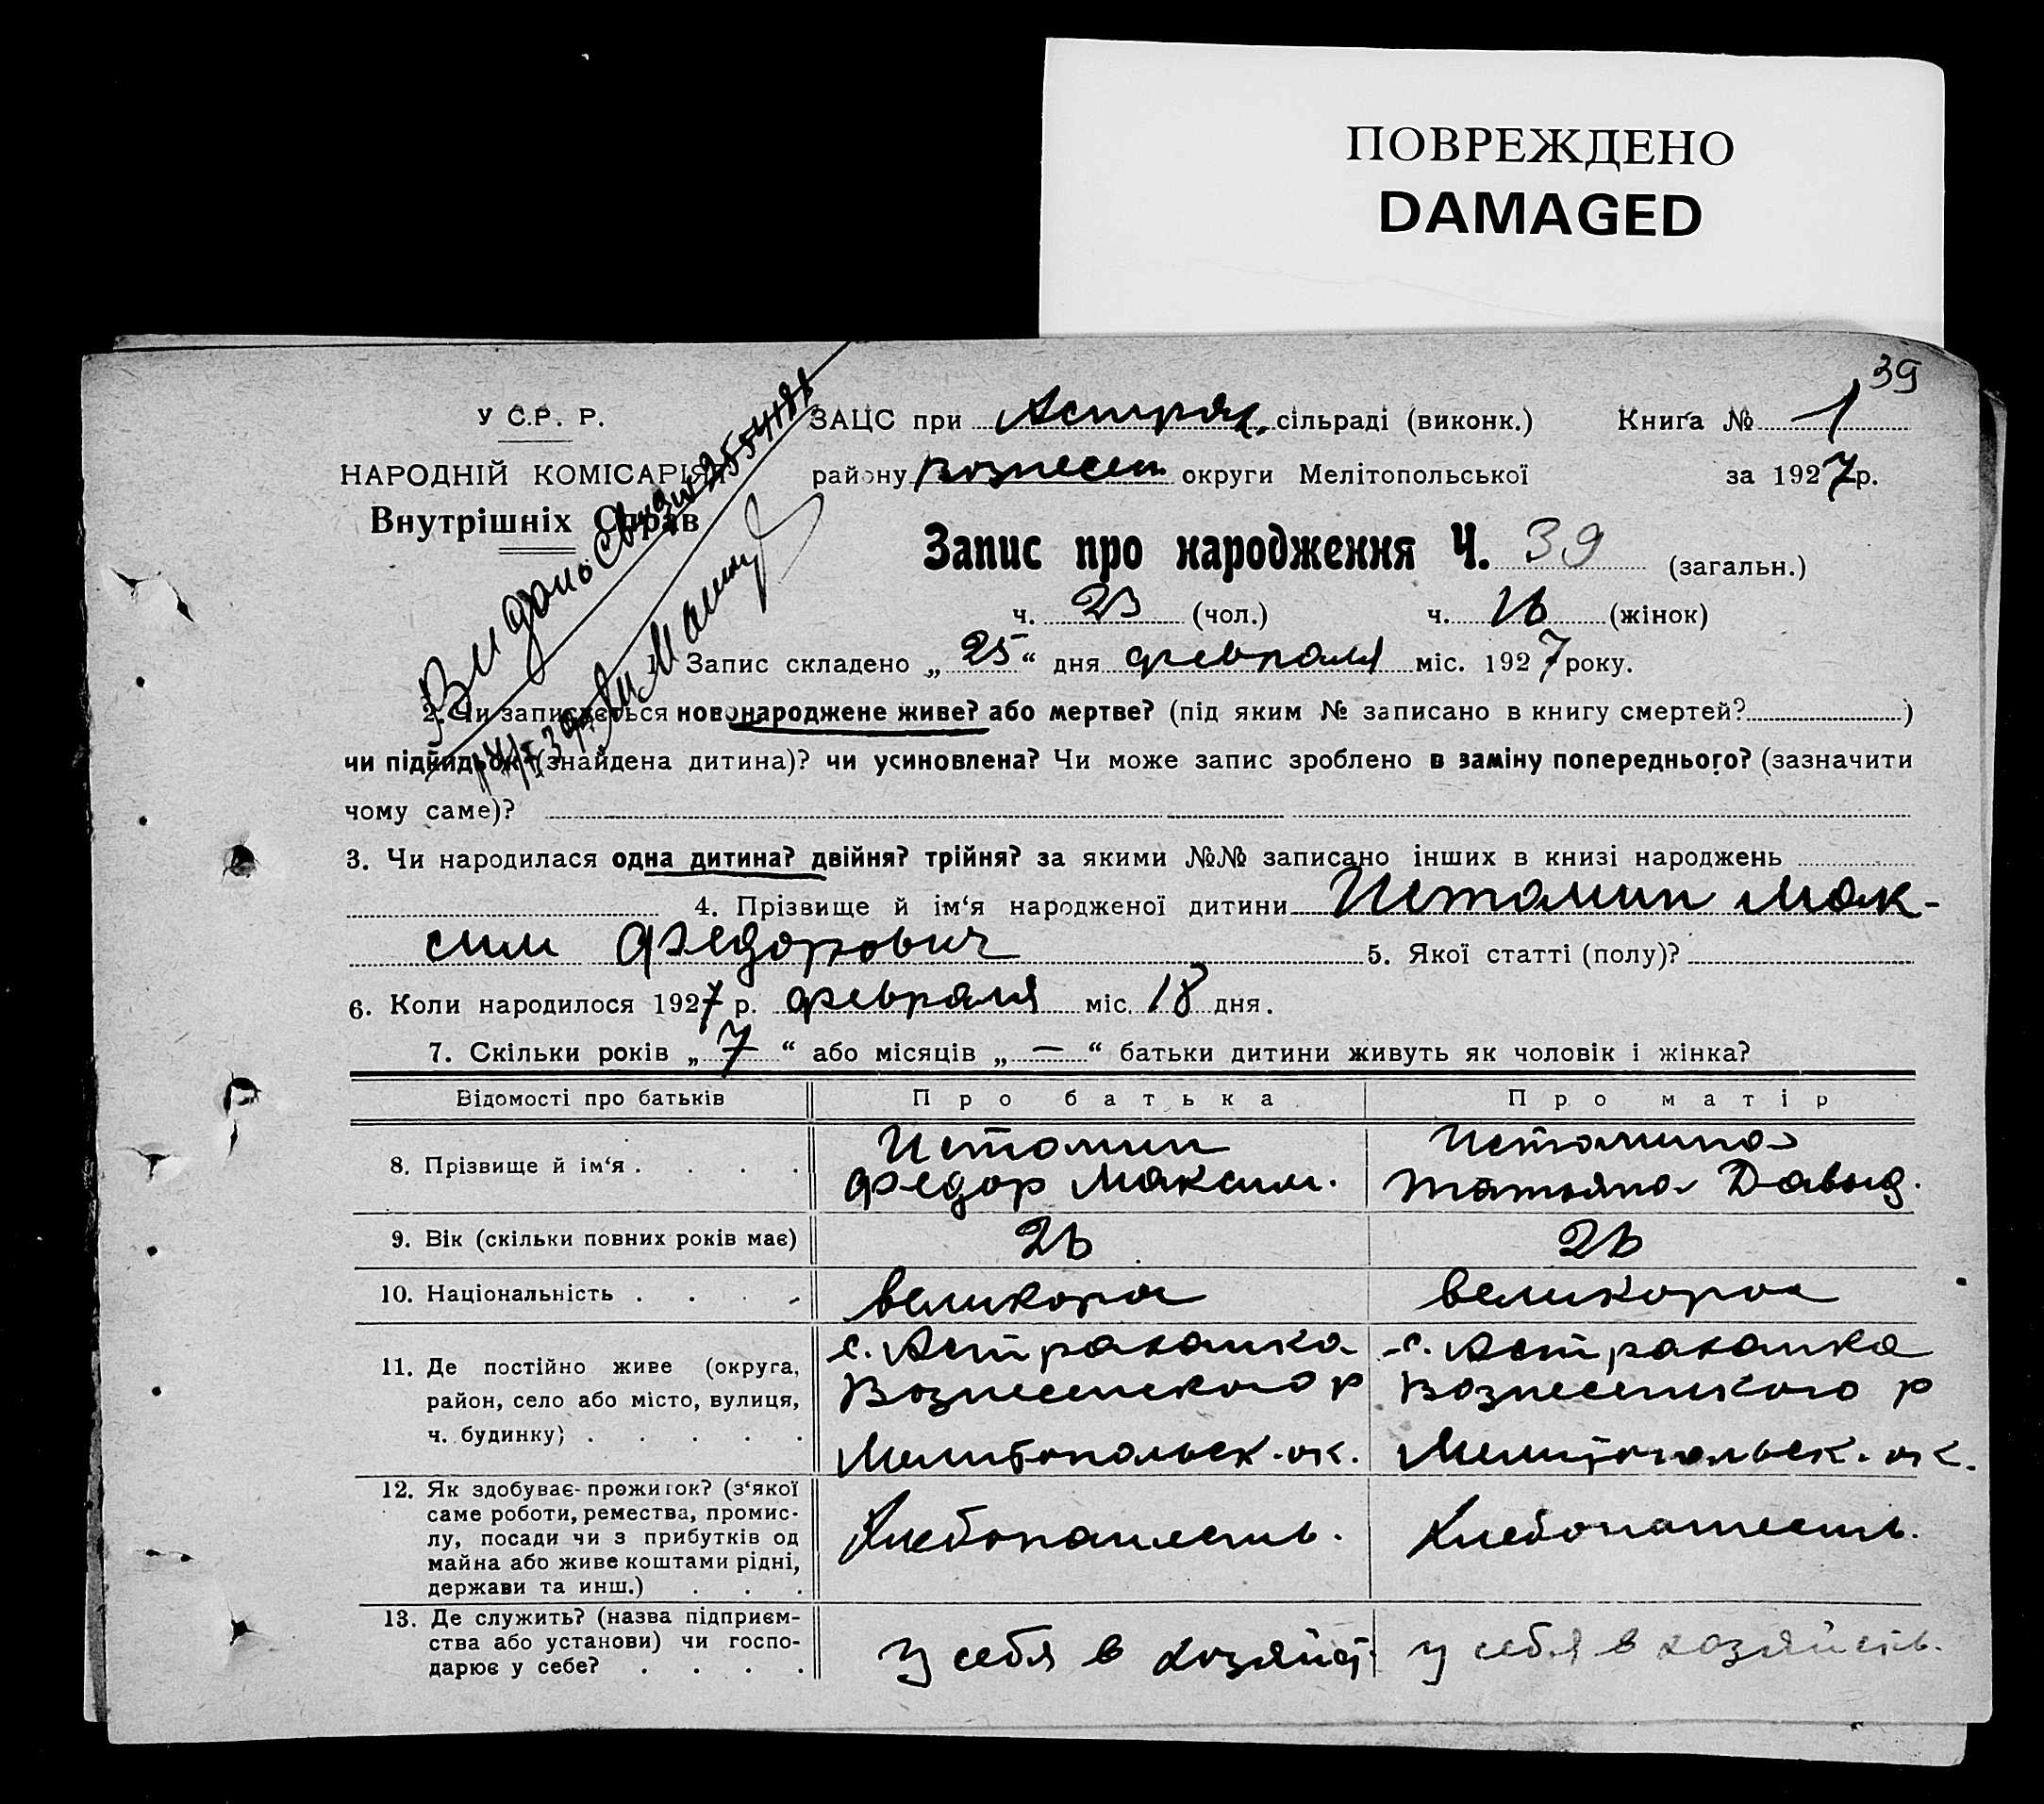 ПОВРЕЖДЕНО
DAMAGED
39
У С.Р. Р.
НАРОДНІЙ КОМІСАРІЯТ
Внутрішніх Справ
ЗАЦС при Астрах. сільраді (виконк.) Книга № 1
району Вознесен округи Мелітопольської за 1927 р.
Запис про народження Ч. 39 (загальн.)
ч. 23 (чол.) ч. 16 (жінок)
1. Запис складено „ 25 “ дня февраля міс. 1927 року.
2. Чи записується новонароджене живе? або мертве? (під яким № записано в книгу смертей? )
чи підкидьок (знайдена дитина)? чи усиновлена? Чи може запис зроблено в заміну попереднього? (зазначити
чому саме)?
3. Чи народилася одна дитина? двійня? трійня? за якими №№ записано інших в книзі народжень
4. Прізвище й ім‘я народженої дитини Истомин Мак-
сим Федорович 5. Якої статті (полу)?
6. Коли народилося 1927 р. февраля міс. 18 дня.
7. Скільки років „ 7 “ або місяців „ — “ батьки дитини живуть як чоловік і жінка?
Відомості про батьків Про батька Про матір
8. Прізвище й ім‘я . . . . Истомин Истомина
Федор Максим. Татьяна Давыд.
9. Вік (скільки повних років має) 26 26
10. Національність . . . . великорос великорос
11. Де постійно живе (округа, с. Астраханка с. Астраханка
район, село або місто, вулиця, Вознесенского р Вознесенского р
ч. будинку) . . . . . Мелитопольск. ок. Мелитопольск. ок.
12. Як здобуває прожиток? (з‘якої
саме роботи, ремества, промис-
лу, посади чи з прибутків од Хлебопашеств. Хлебопашеств.
майна або живе коштами рідні,
держави та инш.) . . .
13. Де служить? (назва підприєм-
ства або установи) чи госпо- у себя в хозяйст. у себя в хозяйств.
дарює у себе? . . . .
Видано